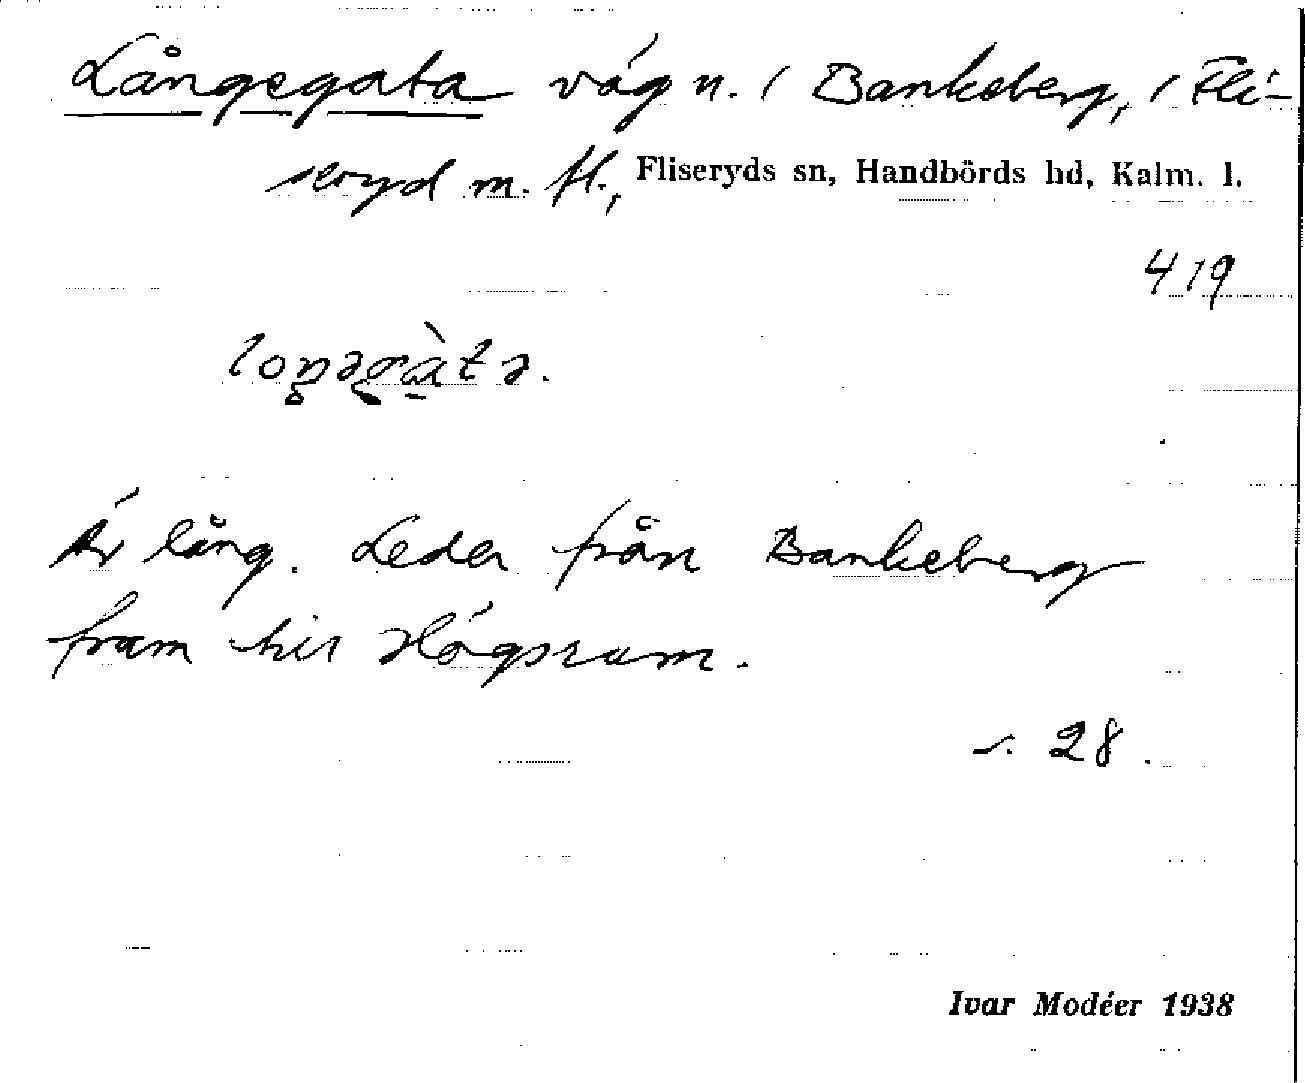 Långegata väg n. i Bankeberg, i Fli-
seryd m. fl., Fliseryds sn, Handbörds hd, Kalm. l.
419
Är lång. Leder från Bankeberg
fram till Högsrum.
s. 28.
Ivar Modéer 1938